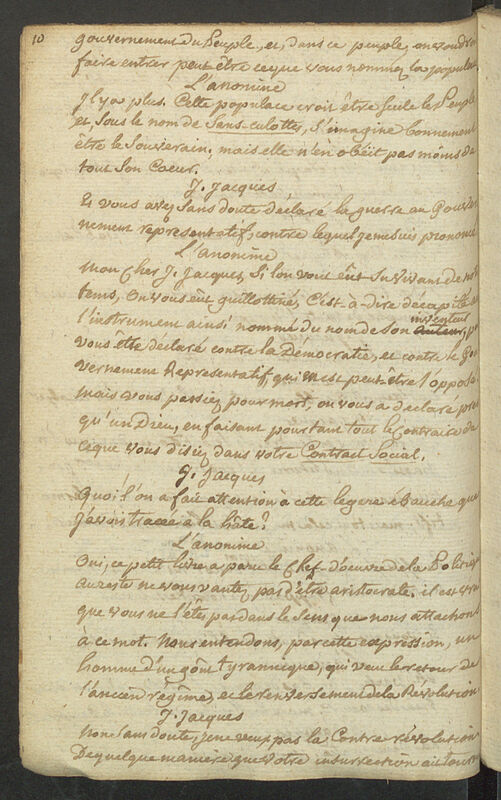 10
gouvernement du Peuple, et, dans ce peuple, on voudra
faire entrer peut être ceque vous nommez la populace,
L'anonime
Il y a plus. Cette populace croit être seule le Peuple
et, sous le nom de Sans-culottes, s'imagine bonnement
être le Souverain, mais elle n'en obéit pas moins de
tout son Coeur.
J. Jacques
Et vous avez sans doute déclaré la guerre au Gouver
nement représentatif, contre lequel je me suis prononcé
L'anonime
Mon Cher J. Jacques, Si l'on vous eût Su vivant de nos
tems, On vous eût guillottiné, C'est-à-dire décapité
l'instrument ainsi nommé du nom de son auteur,
inventeur
vous être déclaré contre la Démocratie, et contre le Gou
vernement Représentatif, qui m'est peut-être l'opposé.
Mais vous passiez pour mort, on vous a déclaré presq
qu'un Dieu, en faisant pourtant tout le Contraire de
ceque vous disiez dans votre Contract Social.
J. Jacques
Quoi l'on a fait attention à cette legere ébauche que
j'avois tracée à la hâte?
L'anonime
Oui, ce petit livre a paru le Chef-d'oeuvre de la Politique
au reste ne vous vantez pas d'être aristocrate. il est vrai
que vous ne l'êtes pas dans le Sens que nous attachons
à ce mot. Nous entendons, par cette expression, un
homme d'un goût tyrannique, qui veut le retour de
l'ancien régime, et le renversement de la Révolution
J. Jacques
Non Sans doute, je ne veux pas la Contre révolution
De quelque manière que votre insurrection ait tourné